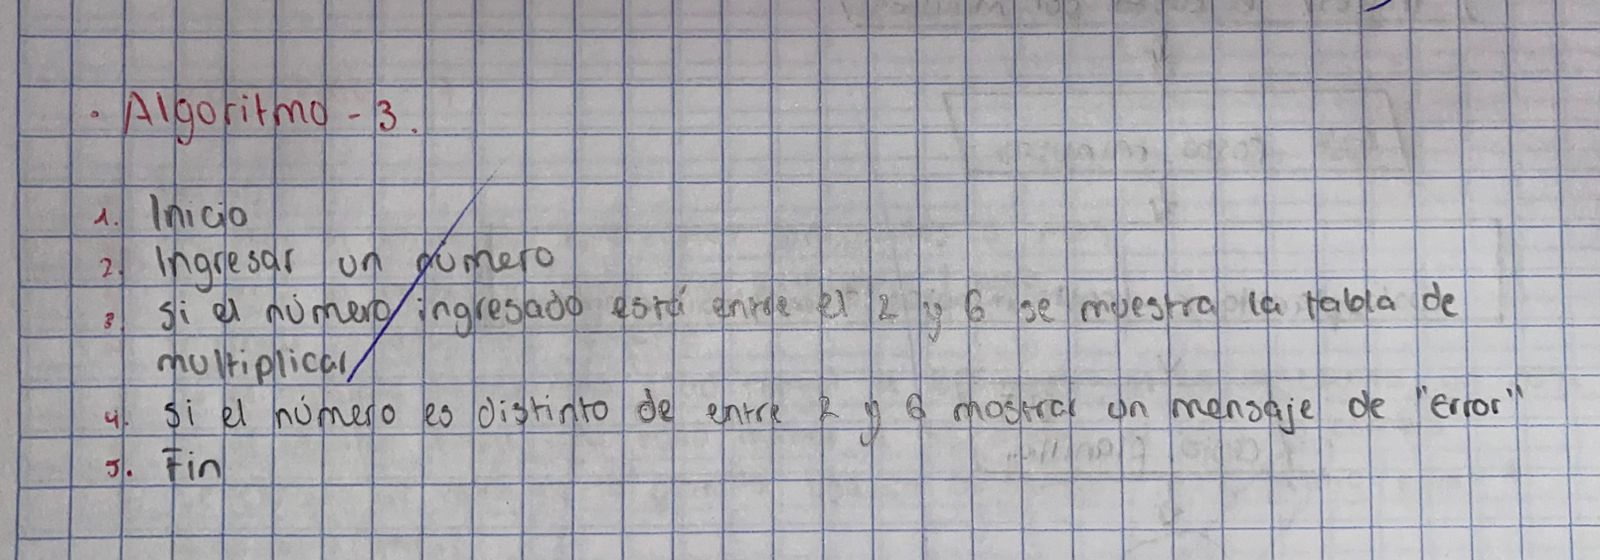 · Algoritmo - 3.
1. Inicio
2. Ingresar un número
3. Si el número ingresado está entre el 2 y 6 se muestra la tabla de
multiplicar
4. Si el número es distinto de entre 2 y 6 mostrar un mensaje de "error"
5. Fin